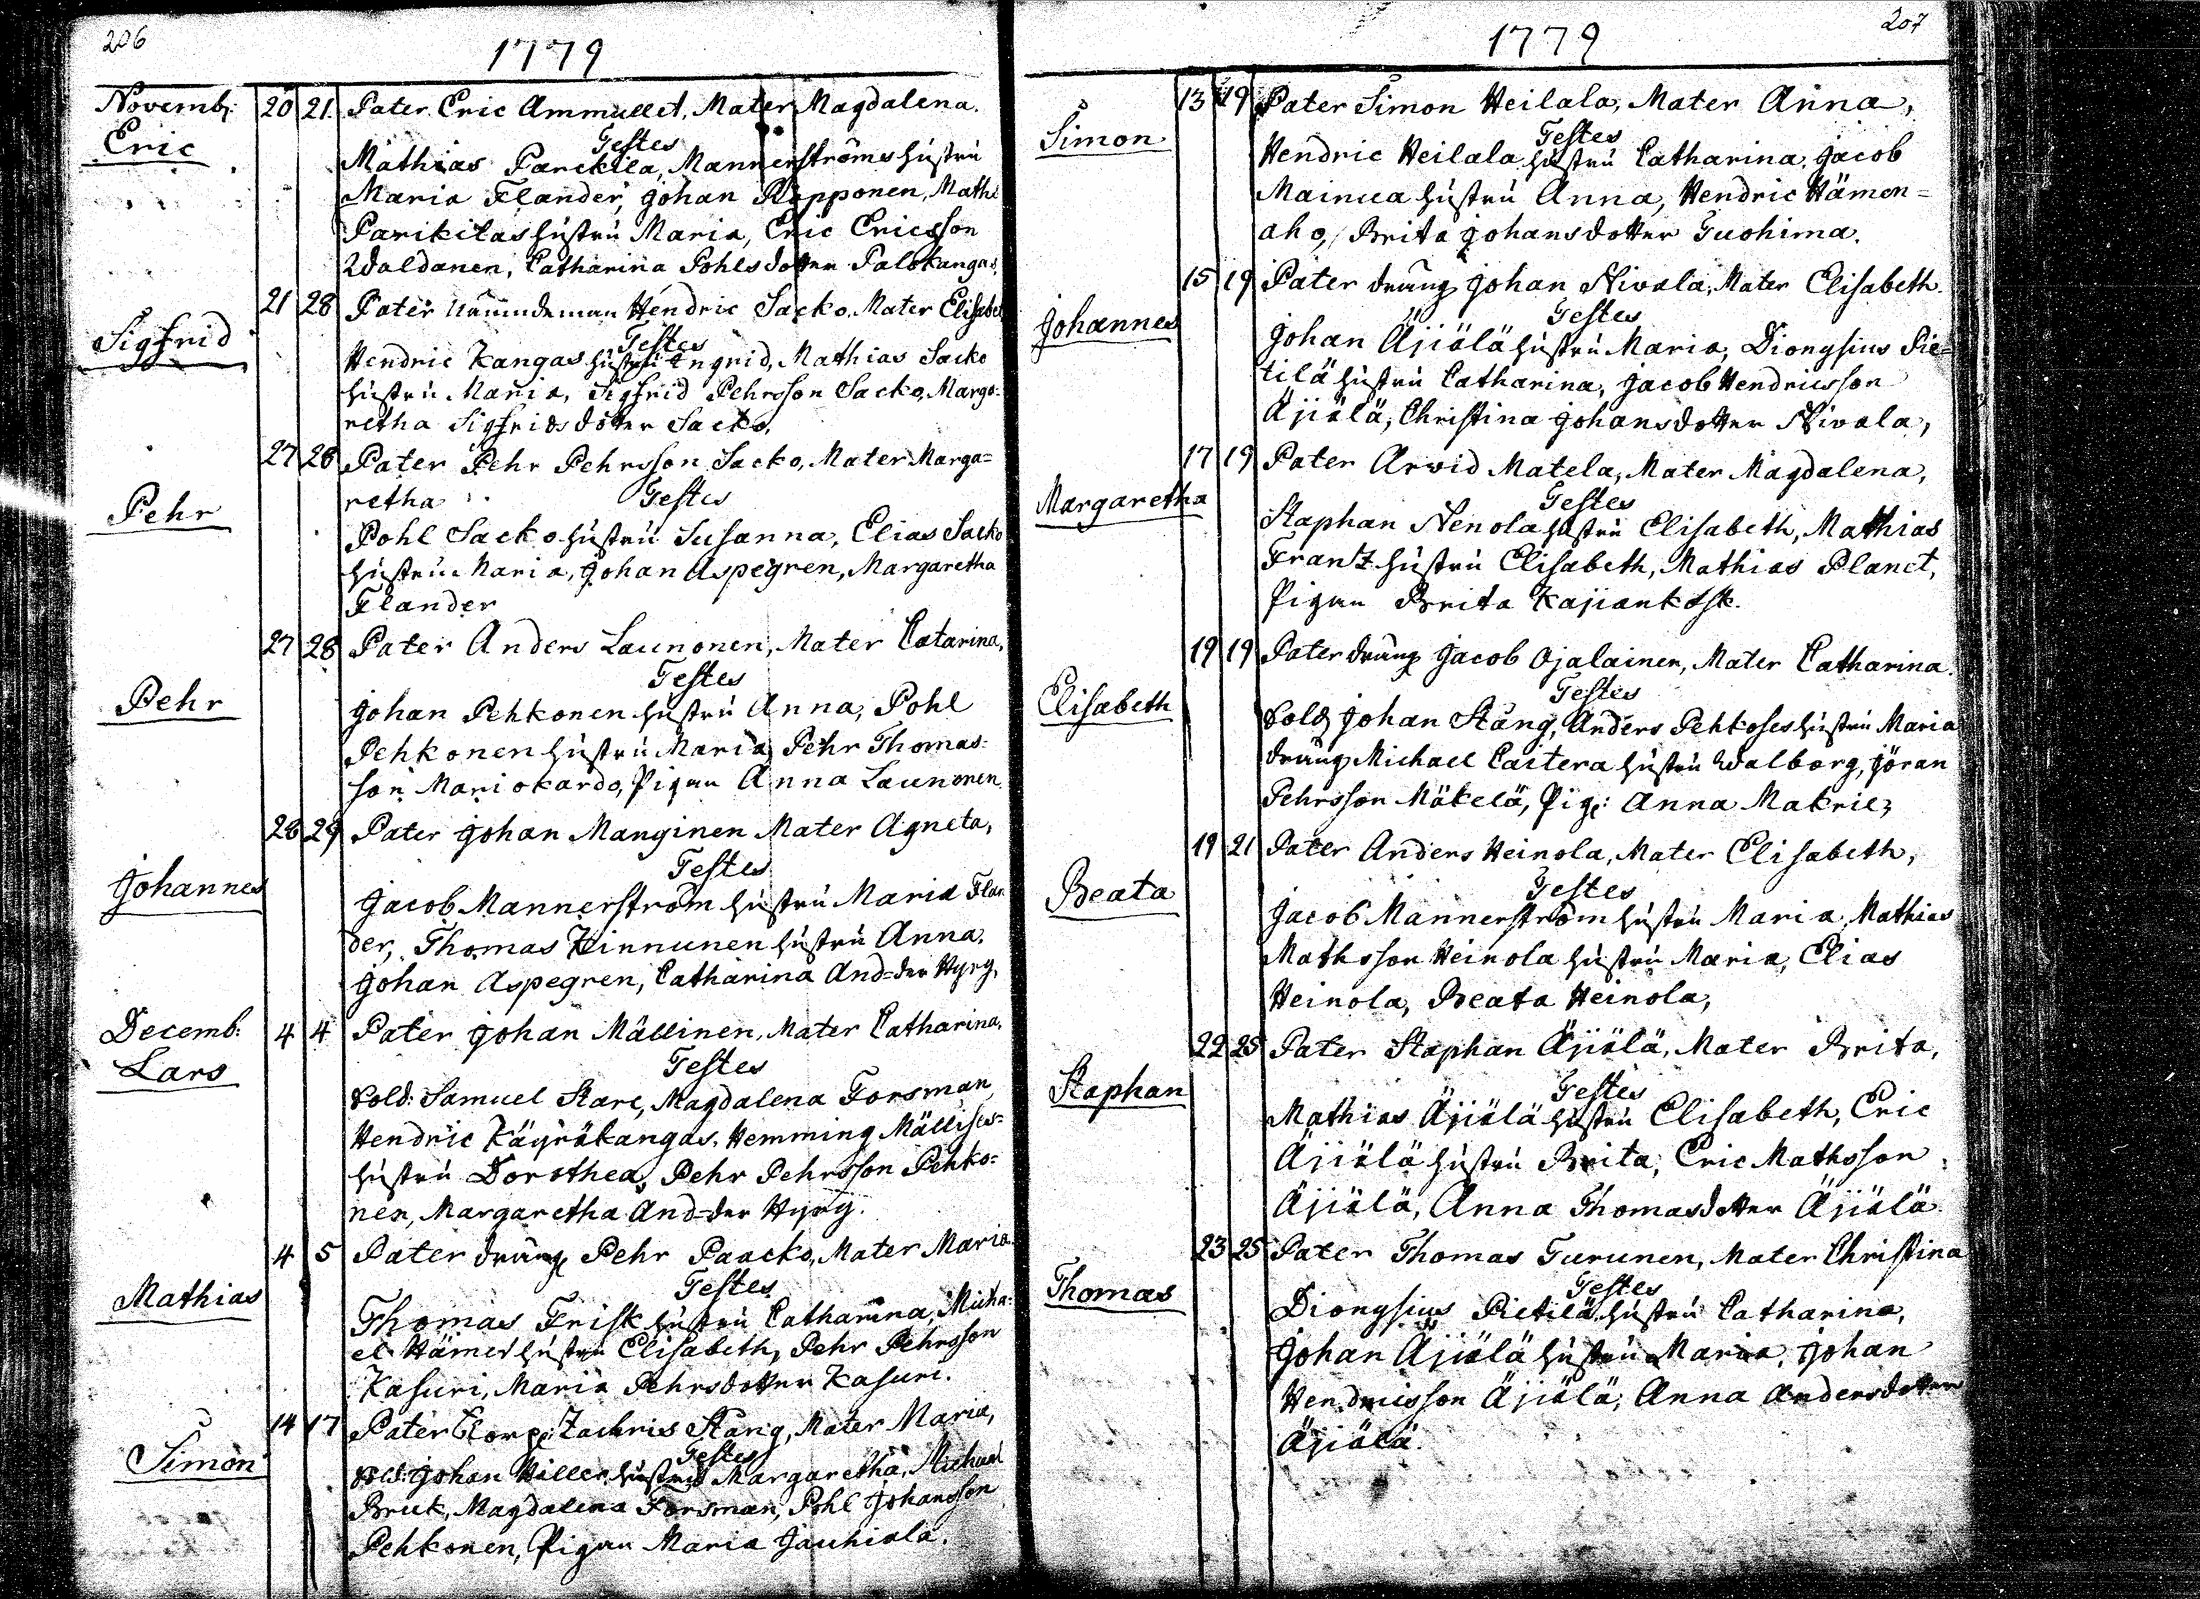 206
1779
Novemb: 20 21. Pater Eric Ammullet, Mater Magdalena.
Eric
Testes
Mathias Parckila, Mannerströms hustru
Maria Flander, Johan Rapponen, Maths
Parikilas hustru Maria, Eric Ericsson
Waldanen, Catharina Pohlsdotter Palokangas,
21 28 Pater Nämndeman Hendric Sacko, Mater Elisabet
Sigfrid
Testes
Hendric Kangas hustru Ingrid, Mathias Sacko
hustru Maria, Sigfrid Pehrsson Sacko, Marga-
retha Sigfridsdotter Sacko.
27 28 Pater Pehr Pehrsson Sacko, Mater Marga=
retha Testes
Pehr
Pohl Sacko hustru Susanna, Elias Sacko
hustru Maria, Johan Aspegren, Margaretha
Flander
27 28 Pater Anders Launonen, Mater Catarina,
Testes
Pehr
Johan Pehkonen hustru Anna, Pohl
Pehkonen hustru Maria, Pehr Thomas-
son Mariokardo, Pigan Anna Launonen
28 29 Pater Johan Manginen Mater Agneta,
Testes
Johannes
Jacob Mannerström hustru Maria Flan
der, Thomas Kinnunen hustru Anna,
Johan Aspegren, Catharina And=der Hyry,
Decemb: 4 4 Pater Johan Mällinen, Mater Catharina,
Lars
Testes
Sold: Samuel Stare, Magdalena Forsman,
Hendric Käyräkangas, Hemming Mällises=
hustru Dorothea, Pehr Pehrsson Pehko=
nen, Margaretha And=der Hyry.
4 5 Pater dräng Pehr Paacko, Mater Maria.
Testes
Mathias
Thomas Frisk hustru Catharina, Micha:
el Hämet hustru Elisabeth, Pehr Pehrsson
Kasuri, Maria Pehrsdotter Kasuri.
14 17 Pater Corp: Zachris Stång, Mater Maria,
Testes
Simon
Sold: Johan Hiller hustru Margaretha, Michael
Bruk, Magdalena Forsman, Pohl Johansson
Pehkonen, Pigan Maria Jauhiala.
207
1779
13 19 Pater Simon Heilala, Mater Anna,
Testes
Simon
Hendric Heilala hustru Catharina, Jacob
Mainua hustru Anna, Hendric Hämen=
aho, Brita Johansdotter Tuohima.
15 19 Pater dräng Johan Nivala, Mater Elisabeth.
Testes
Johannes
Johan Äjiälä hustru Maria, Dionysius Pie=
tilä hustru Catharina, Jacob Hendricsson
Äjiälä, Christina Johansdotter Nivala,
17 19 Pater Arvid Matela, Mater Magdalena,
Testes
Margaretha
Staphan Nenola hustru Elisabeth, Mathias
Frantz hustru Elisabeth, Mathias Planet,
Pigan Brita Kajiankosk.
19 19 Pater dräng Jacob Ojalainen, Mater Catharina.
Testes
Elisabeth
Sold: Johan Stång, Anders Pehkoses hustru Maria
dräng Michael Cartera hustru Walborg, Jöran
Pehrsson Mäkelä, Pig: Anna Makrie,
19 21 Pater Anders Heinola, Mater Elisabeth,
Testes
Beata
Jacob Mannerström hustru Maria, Mathias
Mathsson Heinola hustru Maria, Elias
Heinola, Beata Heinola,
22 25 Pater Staphan Äjiälä, Mater Brita,
Testes
Staphan
Mathias Äjiälä hustru Elisabeth, Eric
Äjiälä hustru Brita, Eric Mathsson
Äjiälä, Anna Thomasdotter Äjiälä
23 25 Pater Thomas Turunen, Mater Christina
Testes
Thomas
Dionysius Pietilä hustru Catharina,
Johan Äjiälä hustru Maria, Johan
Hendricsson Äjiälä, Anna Andersdotter
Äjiälä.